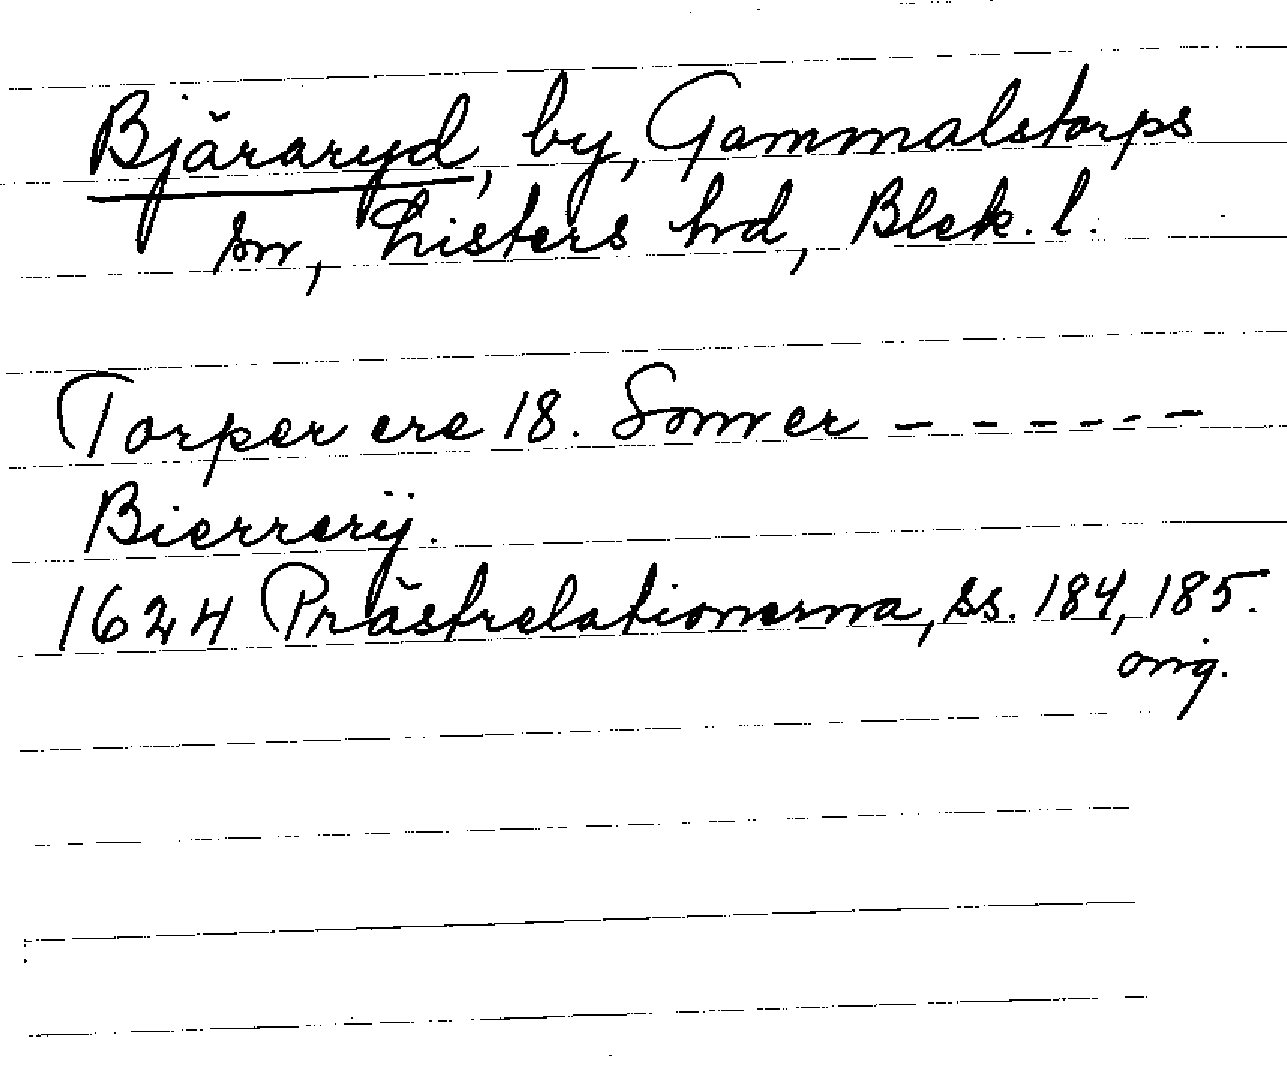 Bjäraryd, by, Gammalstorps
sn, Listers hrd, Blek. l.
Torper ere 18. Somer – – – – – –
Bierrerÿ.
1624 Prästrelationerna, ss. 184, 185.
orig.